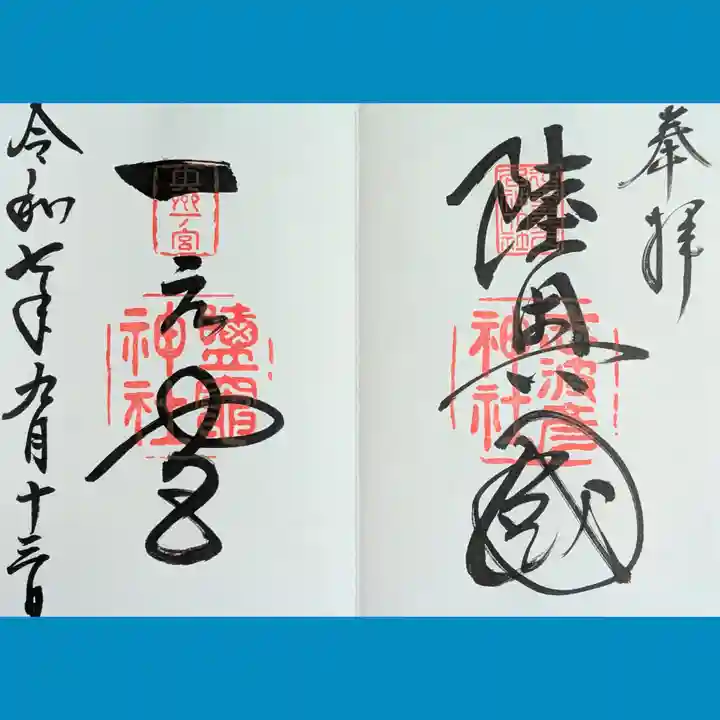 奉拝
陸奥國
志波彦神社
一之宮
奥州一ノ宮
鹽竈神社
令和七年九月十三日